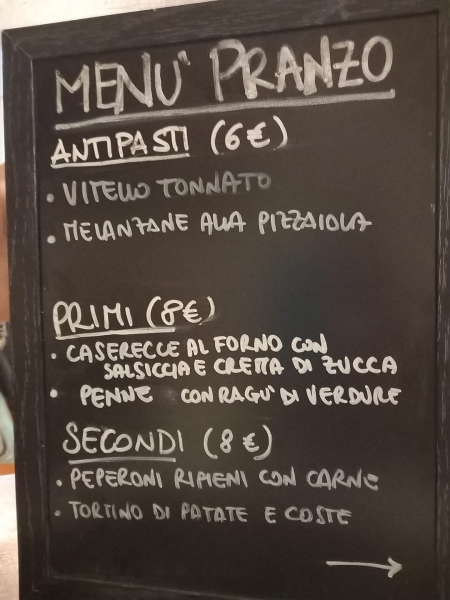 MENU' PRANZO
ANTIPASTI (6€)
• VITELLO TONNATO
• MELANZANE ALLA PIZZAIOLA
PRIMI (8€)
• CASERECCE AL FORNO CON
SALSICCIA E CREMA DI ZUCCA
• PENNE CON RAGU' DI VERDURE
SECONDI (8€)
• PEPERONI RIPIENI CON CARNE
• TORTINO DI PATATE E COSTE
→